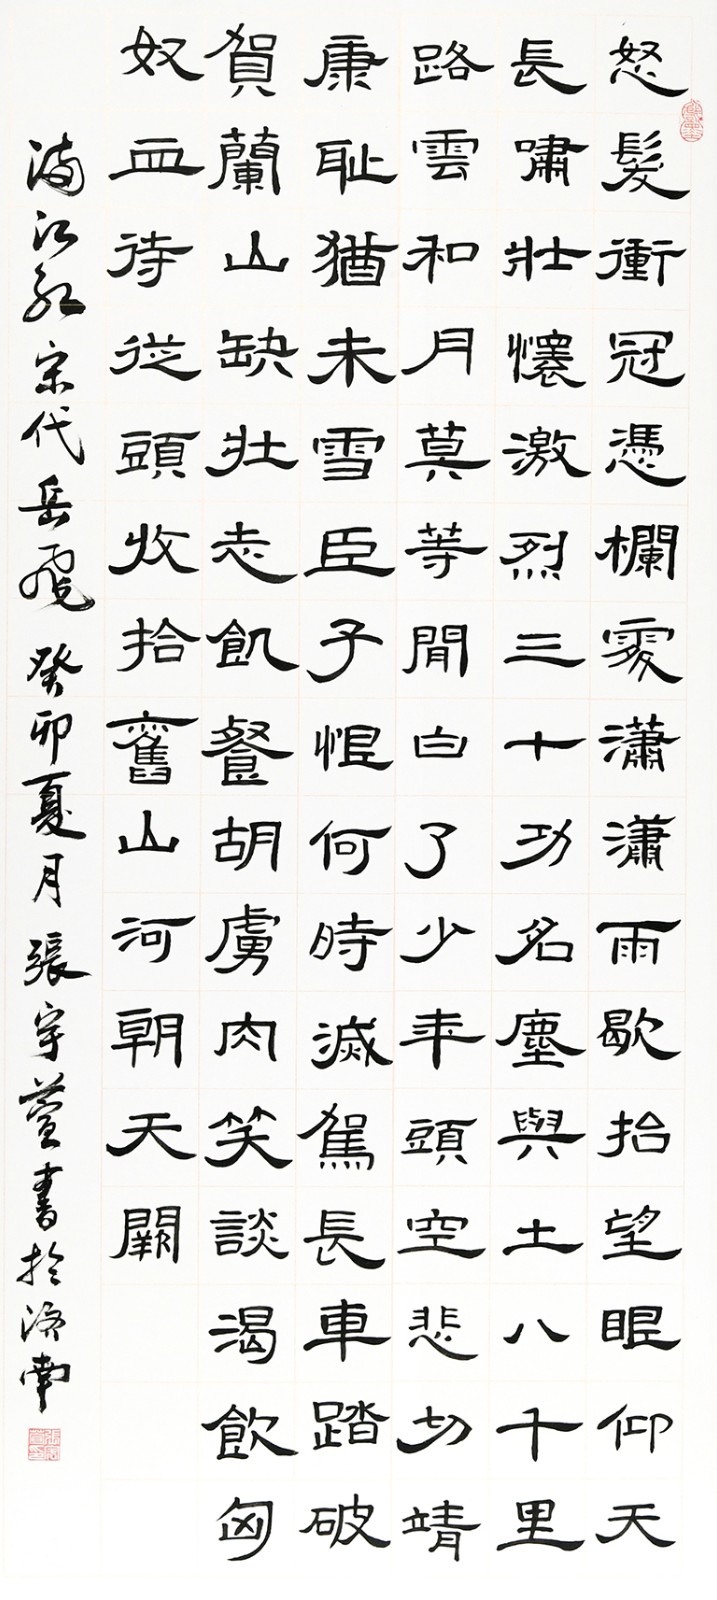 怒髮衝冠憑欄處瀟瀟雨歇抬望眼仰天
長嘯壯懷激烈三十功名塵與土八千里
路雲和月莫等閒白了少年頭空悲切靖
康恥猶未雪臣子恨何時滅駕長車踏破
賀蘭山缺壯志飢餐胡虜肉笑談渴飲匈
奴血待從頭收拾舊山河朝天闕
滿江紅宋代岳飛癸卯夏月張宇萱書於濟南